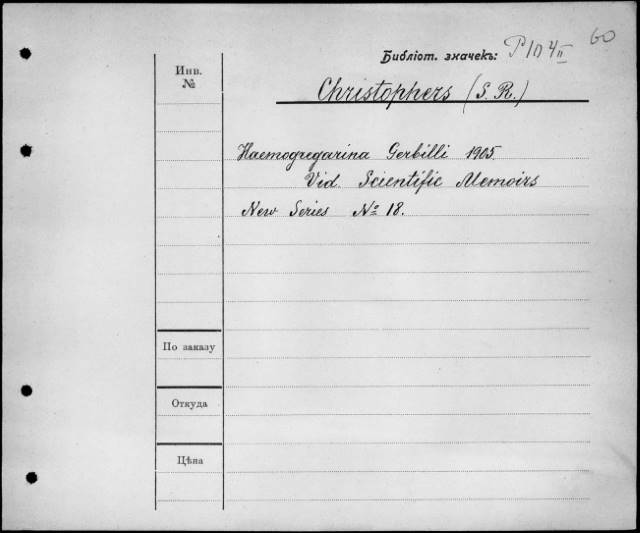 60
Библіот. значекъ: P10 4II
Инв.
№
Christophers (S. R.)
Haemogregarina Gerbilli 1905.
Vid. Scientific Memoirs
New Series № 18.
По заказу
Откуда
Цѣна